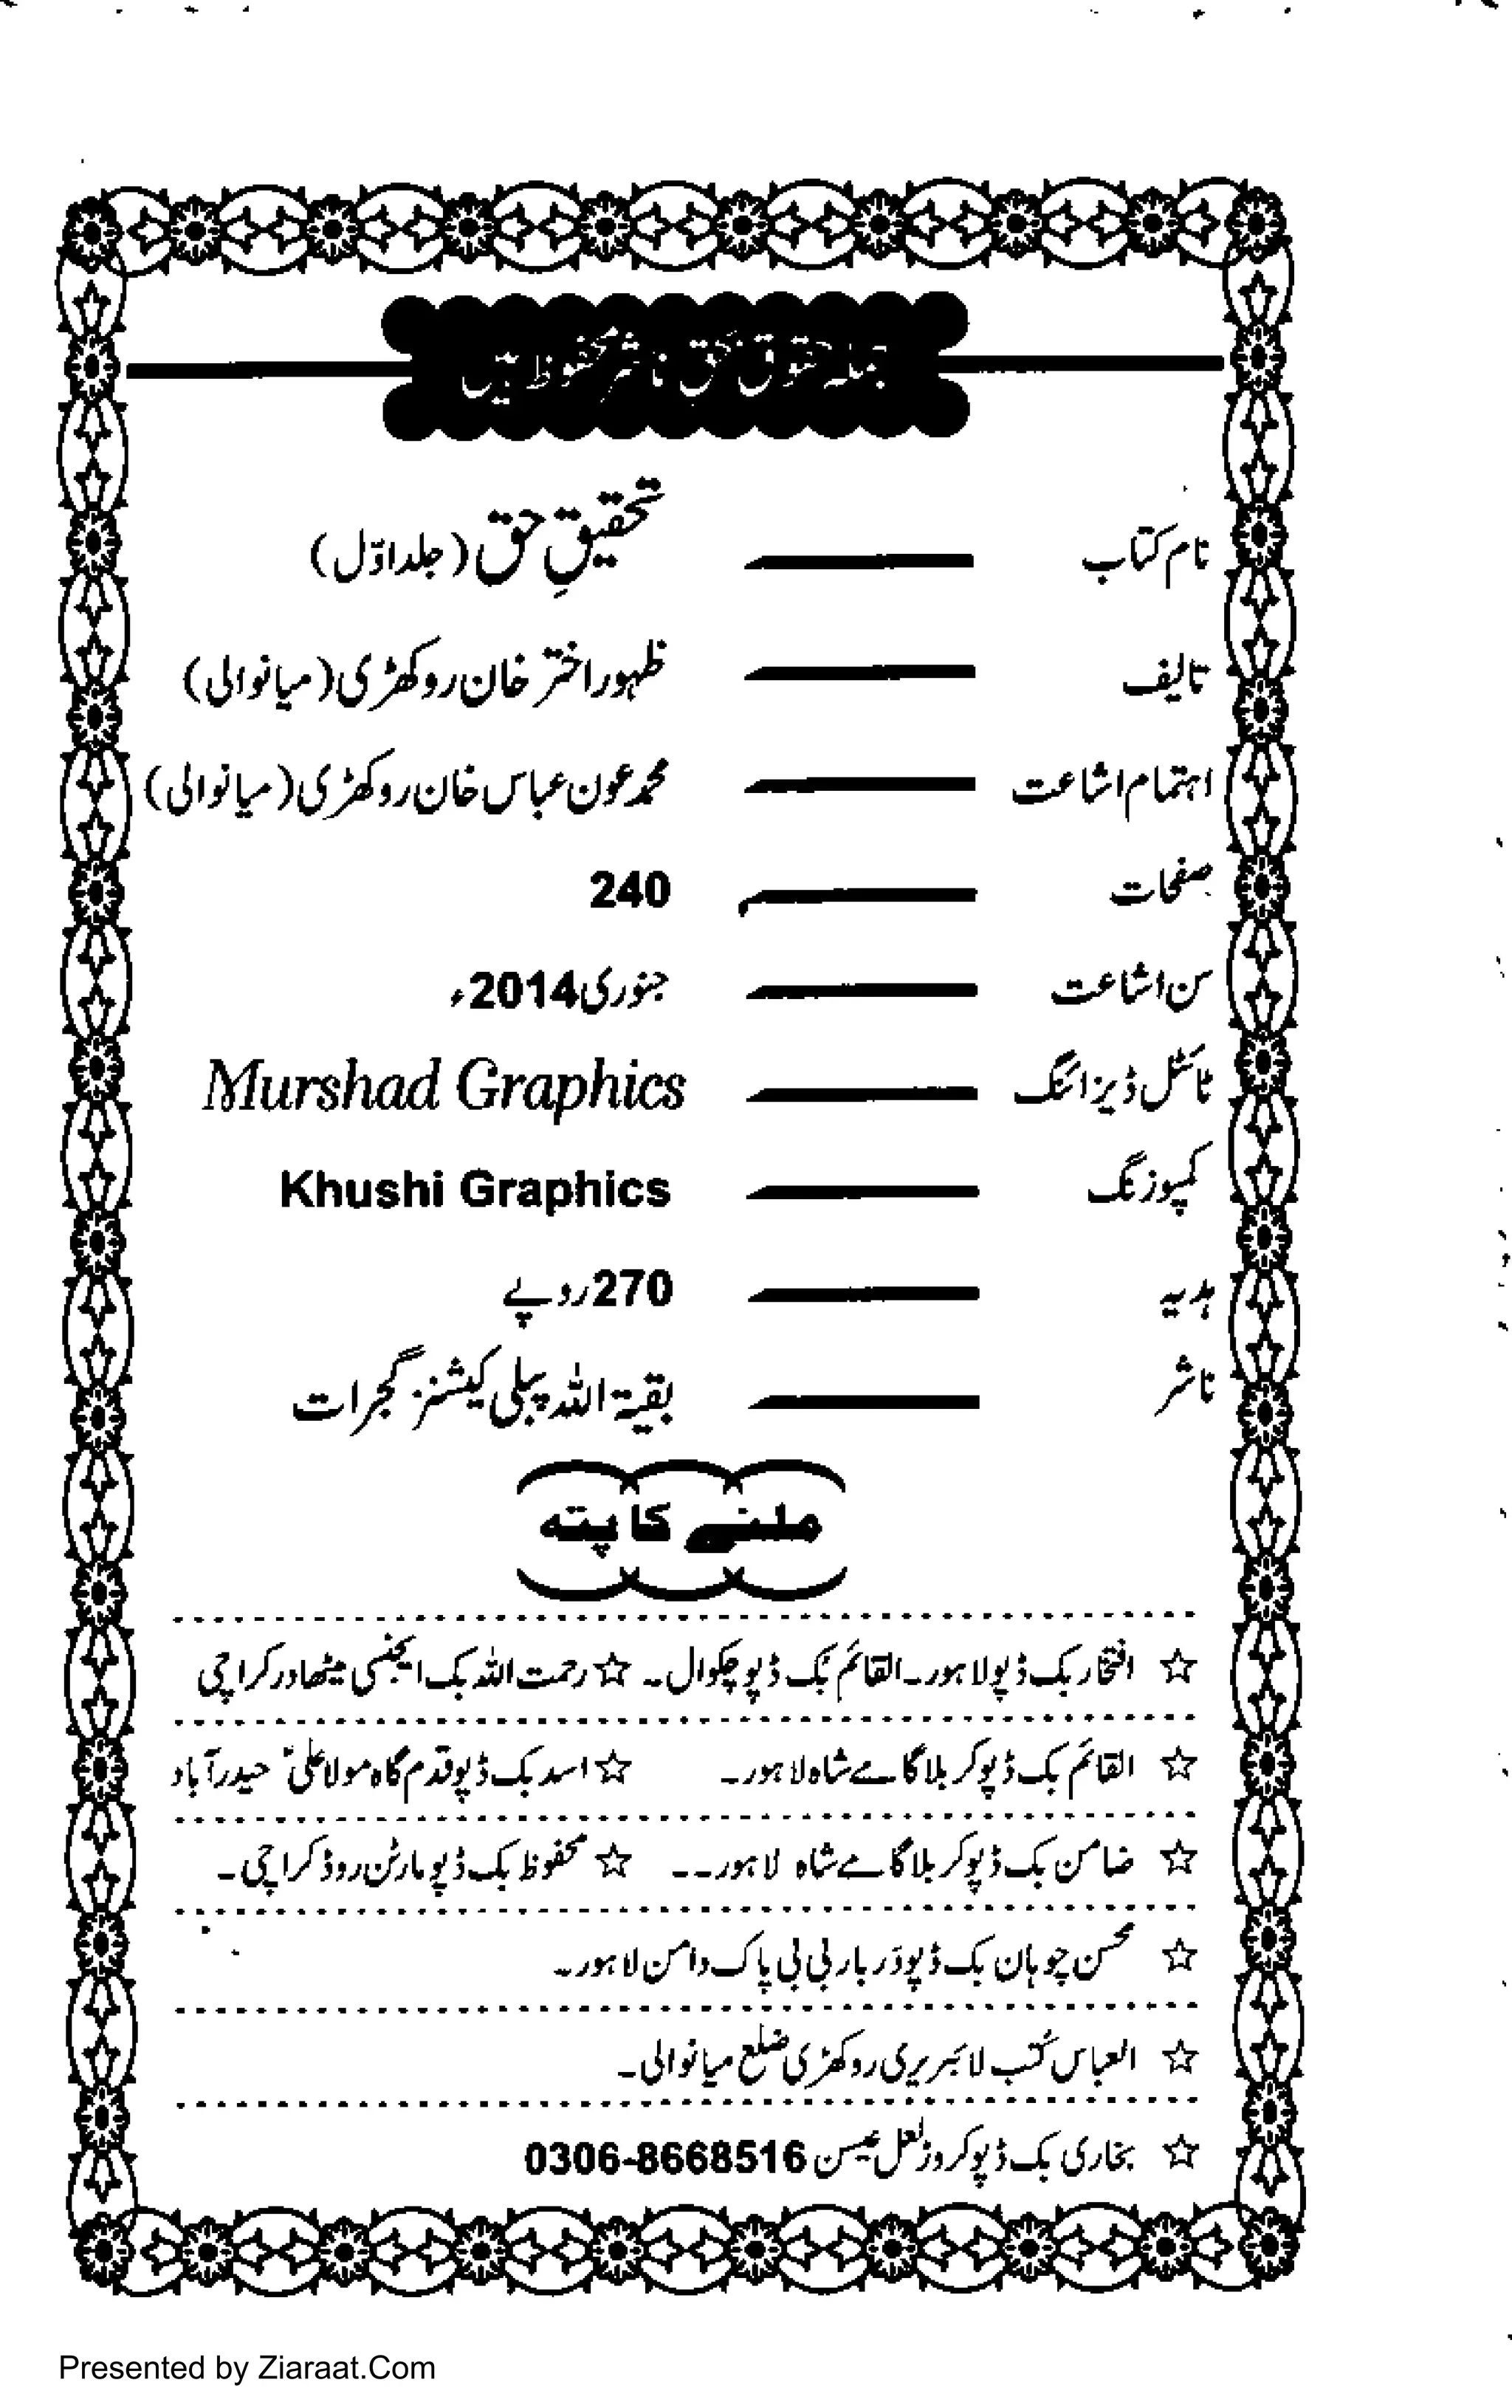 جملہ حقوق بحق ناشر محفوظ ہیں
نام کتاب ـــــ تحقیقِ حق (جلد اوّل)
تالیف ـــــ ظہور اختر خان روکھڑی (میانوالی)
اہتمام اشاعت ـــــ محمد عون عباس خان روکھڑی (میانوالی)
صفحات ـــــ 240
سن اشاعت ـــــ جنوری 2014ء
ٹائٹل ڈیزائنگ ـــــ Murshad Graphics
کمپوزنگ ـــــ Khushi Graphics
ہدیہ ـــــ 270 روپے
ناشر ـــــ بقیۃ اللہ پبلی کیشنز گجرات
ملنے کا پتہ
☆ افتخار بک ڈپو لاہور۔ القائم بک ڈپو چکوال۔ ☆ رحمت اللہ بک ایجنسی میٹھادر کراچی
☆ القائم بک ڈپو کربلا گامے شاہ لاہور۔ ☆ اسد بک ڈپو قدم گاہ مولا علیؑ حیدرآباد
☆ ضامن بک ڈپو کربلا گامے شاہ لاہور۔۔ ☆ محفوظ بک ڈپو مارٹن روڈ کراچی۔
☆ محسن چوہان بک ڈپو دربار بی بی پاک دامن لاہور۔
☆ العباس کُتب لائبریری روکھڑی ضلع میانوالی۔
☆ بخاری بک ڈپو کروڑ لعل عیسن 0306-8668516
Presented by Ziaraat.Com